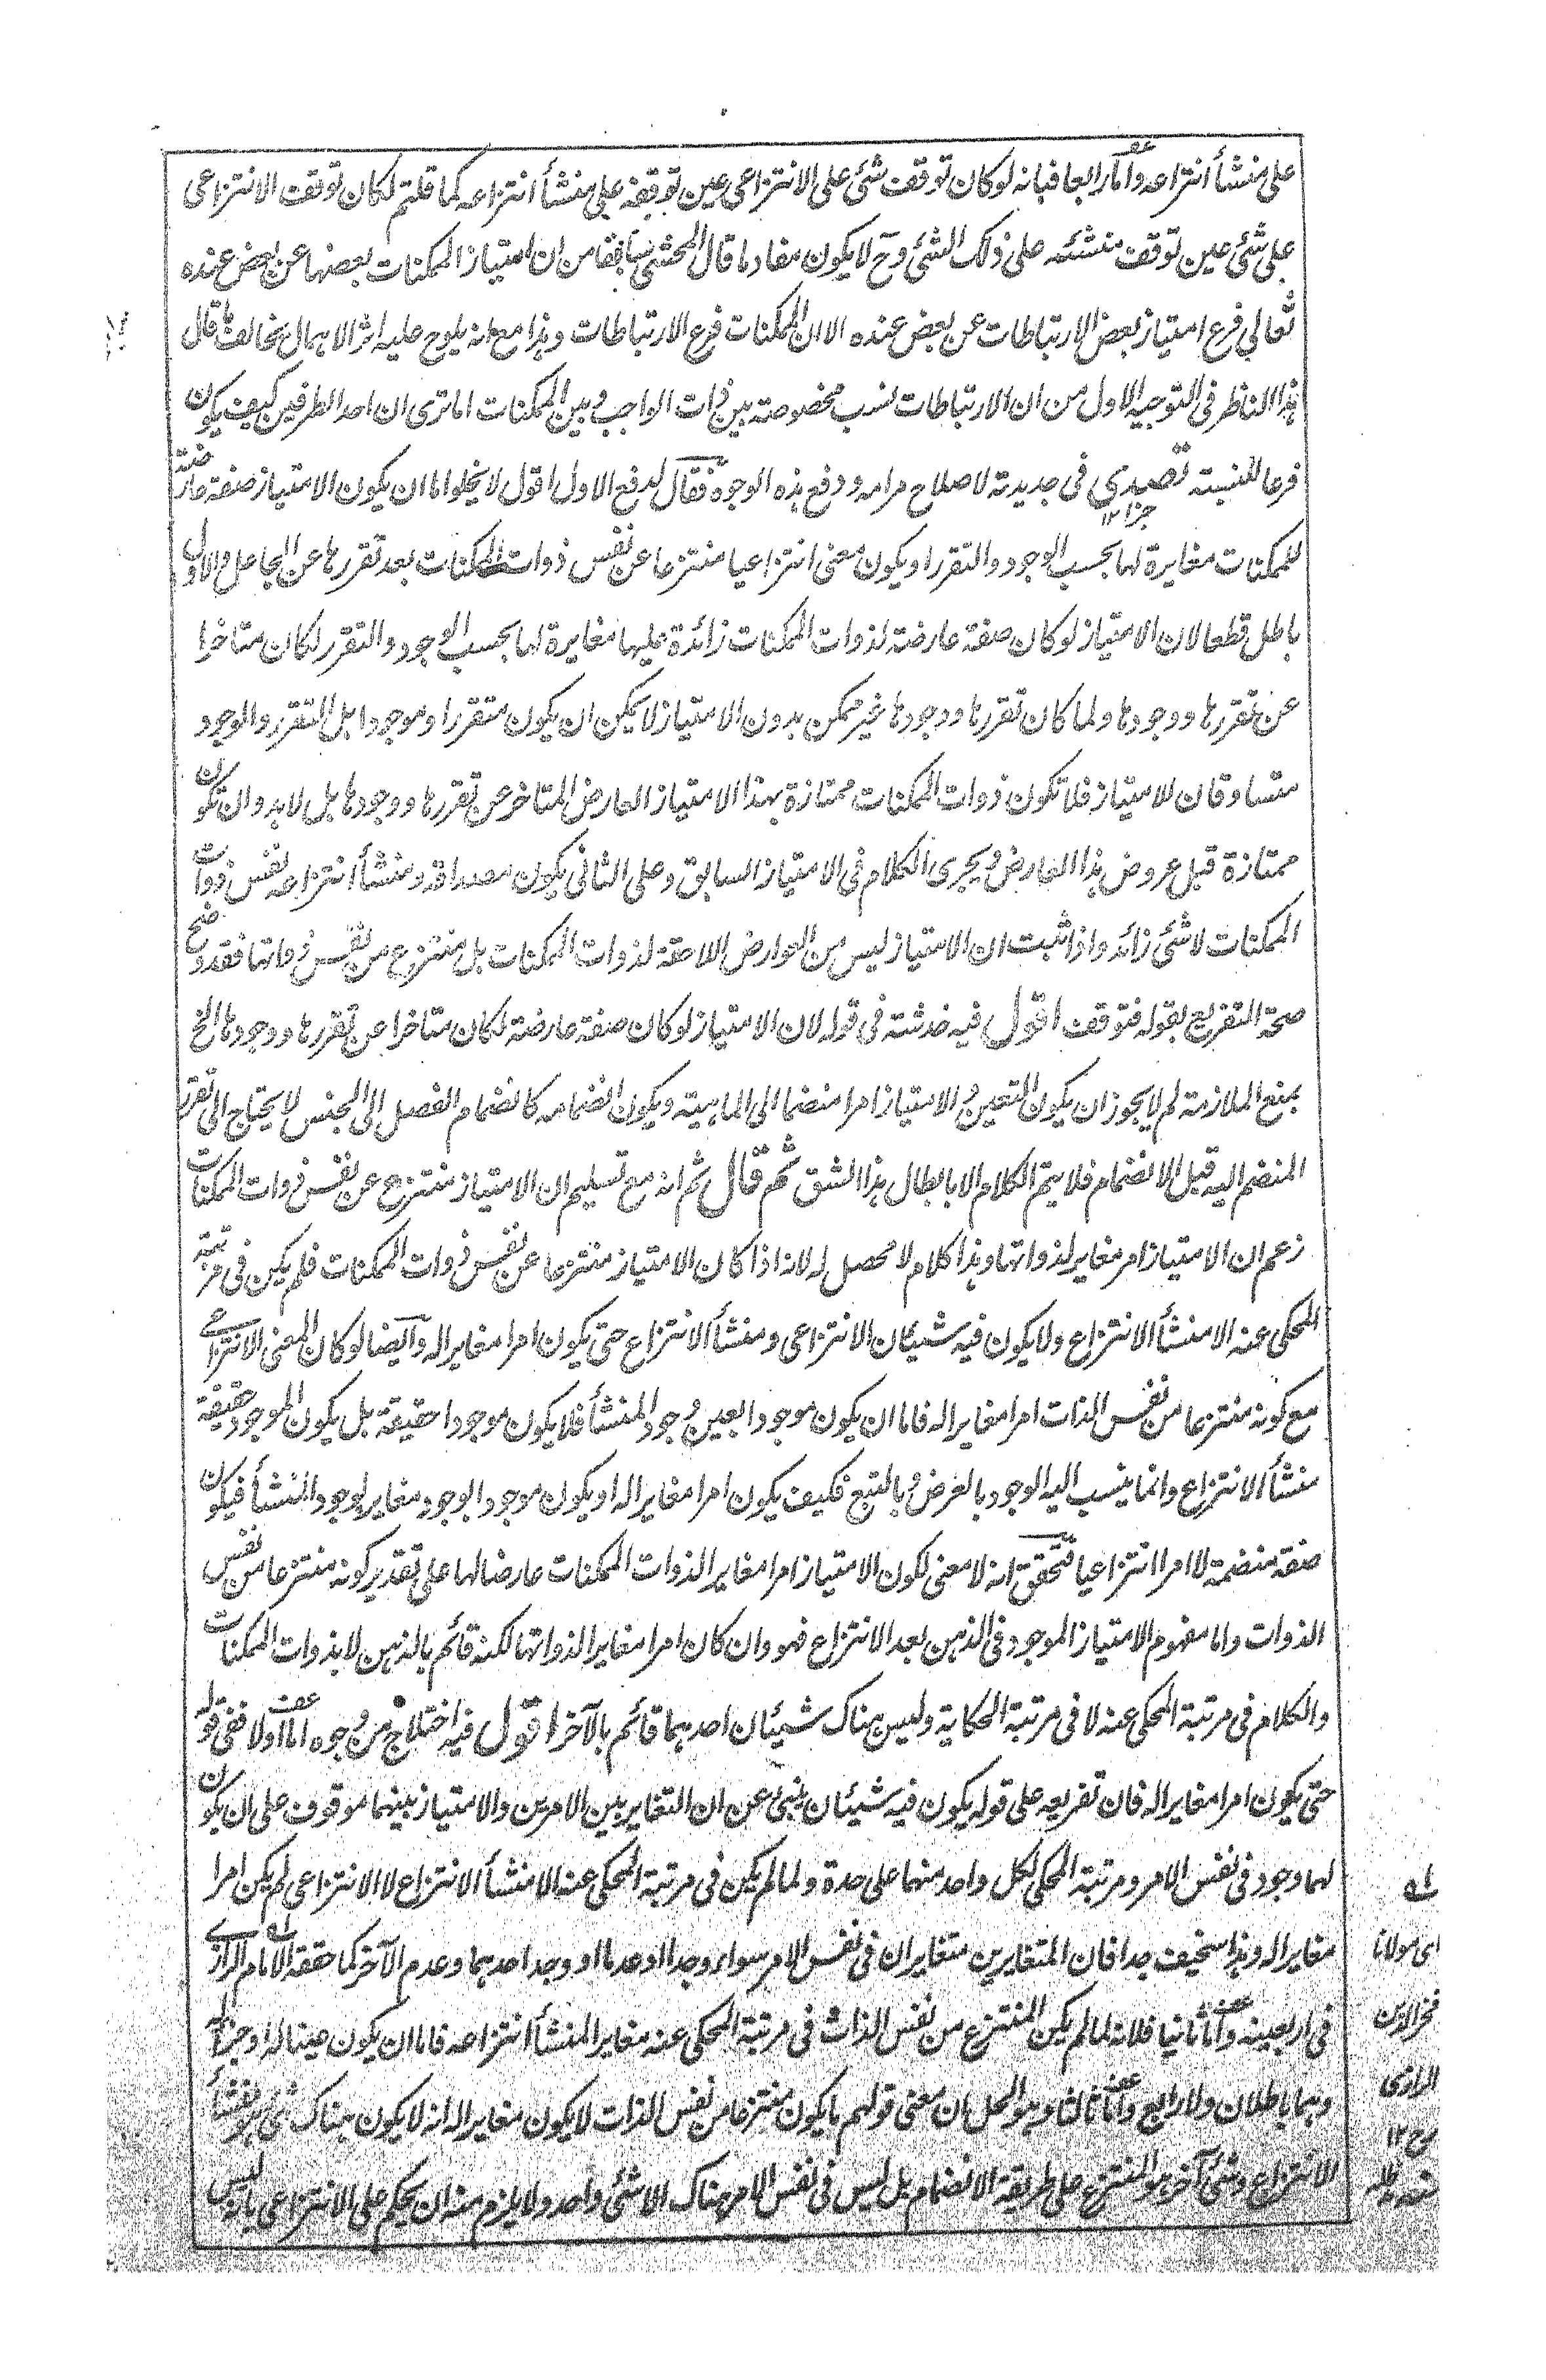 على منشأ انتزاعه وأما رابعا فبانه لو كان توقف شئ على الانتزاعى عين توقفه على منشأ انتزاعه كما قلتم لكان توقف الانتزاعى
على شئ عين توقف منشئه على ذلك الشئ وح لا يكون مفاد ما قال المحشى سابقا من ان امتياز الممكنات بعضها عن بعض عنده
تعالى فرع امتياز بعض الارتباطات عن بعض عنده الا ان الممكنات فرع الارتباطات وهذا مع انه يلوح عليه اثر الاهمال يخالف ما قال
هذا الناظر فى التوجيه الاول من ان الارتباطات نسب مخصوصة بين ذات الواجب وبين الممكنات اما ترى ان احد الطرفين كيف يكون
فرعا للنسبة تصدى فى جديدته لاصلاح مرامه ودفع هذه الوجوه فقال لدفع الاول اقول لا يخلو اما ان يكون الامتياز صفة عارضة
للممكنات مغايرة لها بحسب الوجود والتقرر او يكون معنى انتزاعيا منتزعا عن نفس ذوات الممكنات بعد تقررها عن الجاعل والاول
باطل قطعا لان الامتياز لو كان صفة عارضة لذوات الممكنات زائدة عليها مغايرة لها بحسب الوجود والتقرر لكان متاخرا
عن تقررها ووجودها ولما كان تقررها ووجودها غير ممكن بدون الامتياز لا يمكن ان يكون متقررا وموجودا بل التقرر والوجود
متساوقان للامتياز فلا تكون ذوات الممكنات ممتازة بهذا الامتياز العارض المتاخر عن تقررها ووجودها بل لابد وان تكون
ممتازة قبل عروض هذا العارض ويجرى الكلام فى الامتياز السابق وعلى الثانى يكون مصداقه ومنشأ انتزاعه نفس ذوات
الممكنات لا شئ زائد واذا ثبت ان الامتياز ليس من العوارض اللاحقة لذوات الممكنات بل منتزع من نفس ذواتها فقد وضح
صحة التفريع بقوله فتوقف اقول فيه خدشة فى قوله لان الامتياز لو كان صفة عارضة لكان متاخرا عن تقررها ووجودها الخ
بمنع الملازمة لم لا يجوز ان يكون التعين والامتياز امرا منضما الى الماهية ويكون انضمامه كانضمام الفصل الى الجنس لا يحتاج الى تقرر
المنضم اليه قبل الانضمام فلا يتم الكلام الا بابطال هذا الشق ثم قال ثم انه مع تسليم ان الامتياز منتزع عن نفس ذوات الممكنات
زعم ان الامتياز امر مغاير لذواتها وهذا كلام لا محصل له لانه اذا كان الامتياز منتزعا عن نفس ذوات الممكنات فلم يكن فى مرتبة
المحكى عنه الا منشأ الانتزاع ولا يكون فيه شيئان الانتزاعى ومنشأ الانتزاع حتى يكون امرا مغايرا له وايضا لو كان المعنى الانتزاعى
مع كونه منتزعا من نفس الذات امرا مغايرا له فاما ان يكون موجودا بعين وجود المنشأ فلا يكون موجودا حقيقة بل يكون الموجود حقيقة
منشأ الانتزاع وانما ينسب اليه الوجود بالعرض وبالتبع فكيف يكون امرا مغايرا له او يكون موجود الوجود مغاير لوجود المنشأ فيكون
صفة منضمة لا امرا انتزاعيا فتحقق انه لا معنى لكون الامتياز امرا مغايرا لذوات الممكنات عارضا لها على تقدير كونه منتزعا من نفس
الذوات واما مفهوم الامتياز الموجود فى الذهن بعد الانتزاع فهو وان كان امرا مغايرا لذواتها لكنه قائم بالذهن لا بذوات الممكنات
والكلام فى مرتبة المحكى عنه لا فى مرتبة الحكاية وليس هناك شيئان احدهما قائم بالآخر اقول فيه اختلاج من وجوه اما اولا ففى قوله
حتى يكون امرا مغايرا له فان تفريعه على قوله يكون فيه شيئان ينبئ عن ان التغاير بين الامرين والامتياز بينهما موقوف على ان يكون
لهما وجود فى نفس الامر ومرتبة المحكى لكل واحد منهما على حدة ولما لم يكن فى مرتبة المحكى عنه الا منشأ الانتزاع لا الانتزاعى لم يكن امرا
مغايرا له وهذا سخيف جدا فان المتغايرين متغايران فى نفس الامر سواء وجدا او عدما او وجد احدهما وعدم الآخر كما حققه الامام الرازى
فى اربعينه وأما ثانيا فلانه لما لم يكن المنتزع من نفس الذات فى مرتبة المحكى عنه مغايرا لمنشأ انتزاعه فاما ان يكون عينا له او جزأ له
وهما باطلان ولا رابع وأما ثالثا وهو الحل بان معنى قولهم ما يكون منتزعا من نفس الذات لا يكون مغايرا له انه لا يكون هناك شئ هو منشأ
الانتزاع وشئ آخر هو المنتزع على طريقة الانضمام بل ليس فى نفس الامر هناك الا شئ واحد ولا يلزم منه ان يحكم على الانتزاعى بانه ليس
اى مولانا
فخر الدين
الرازى
رح ١٢
منه مد ظله